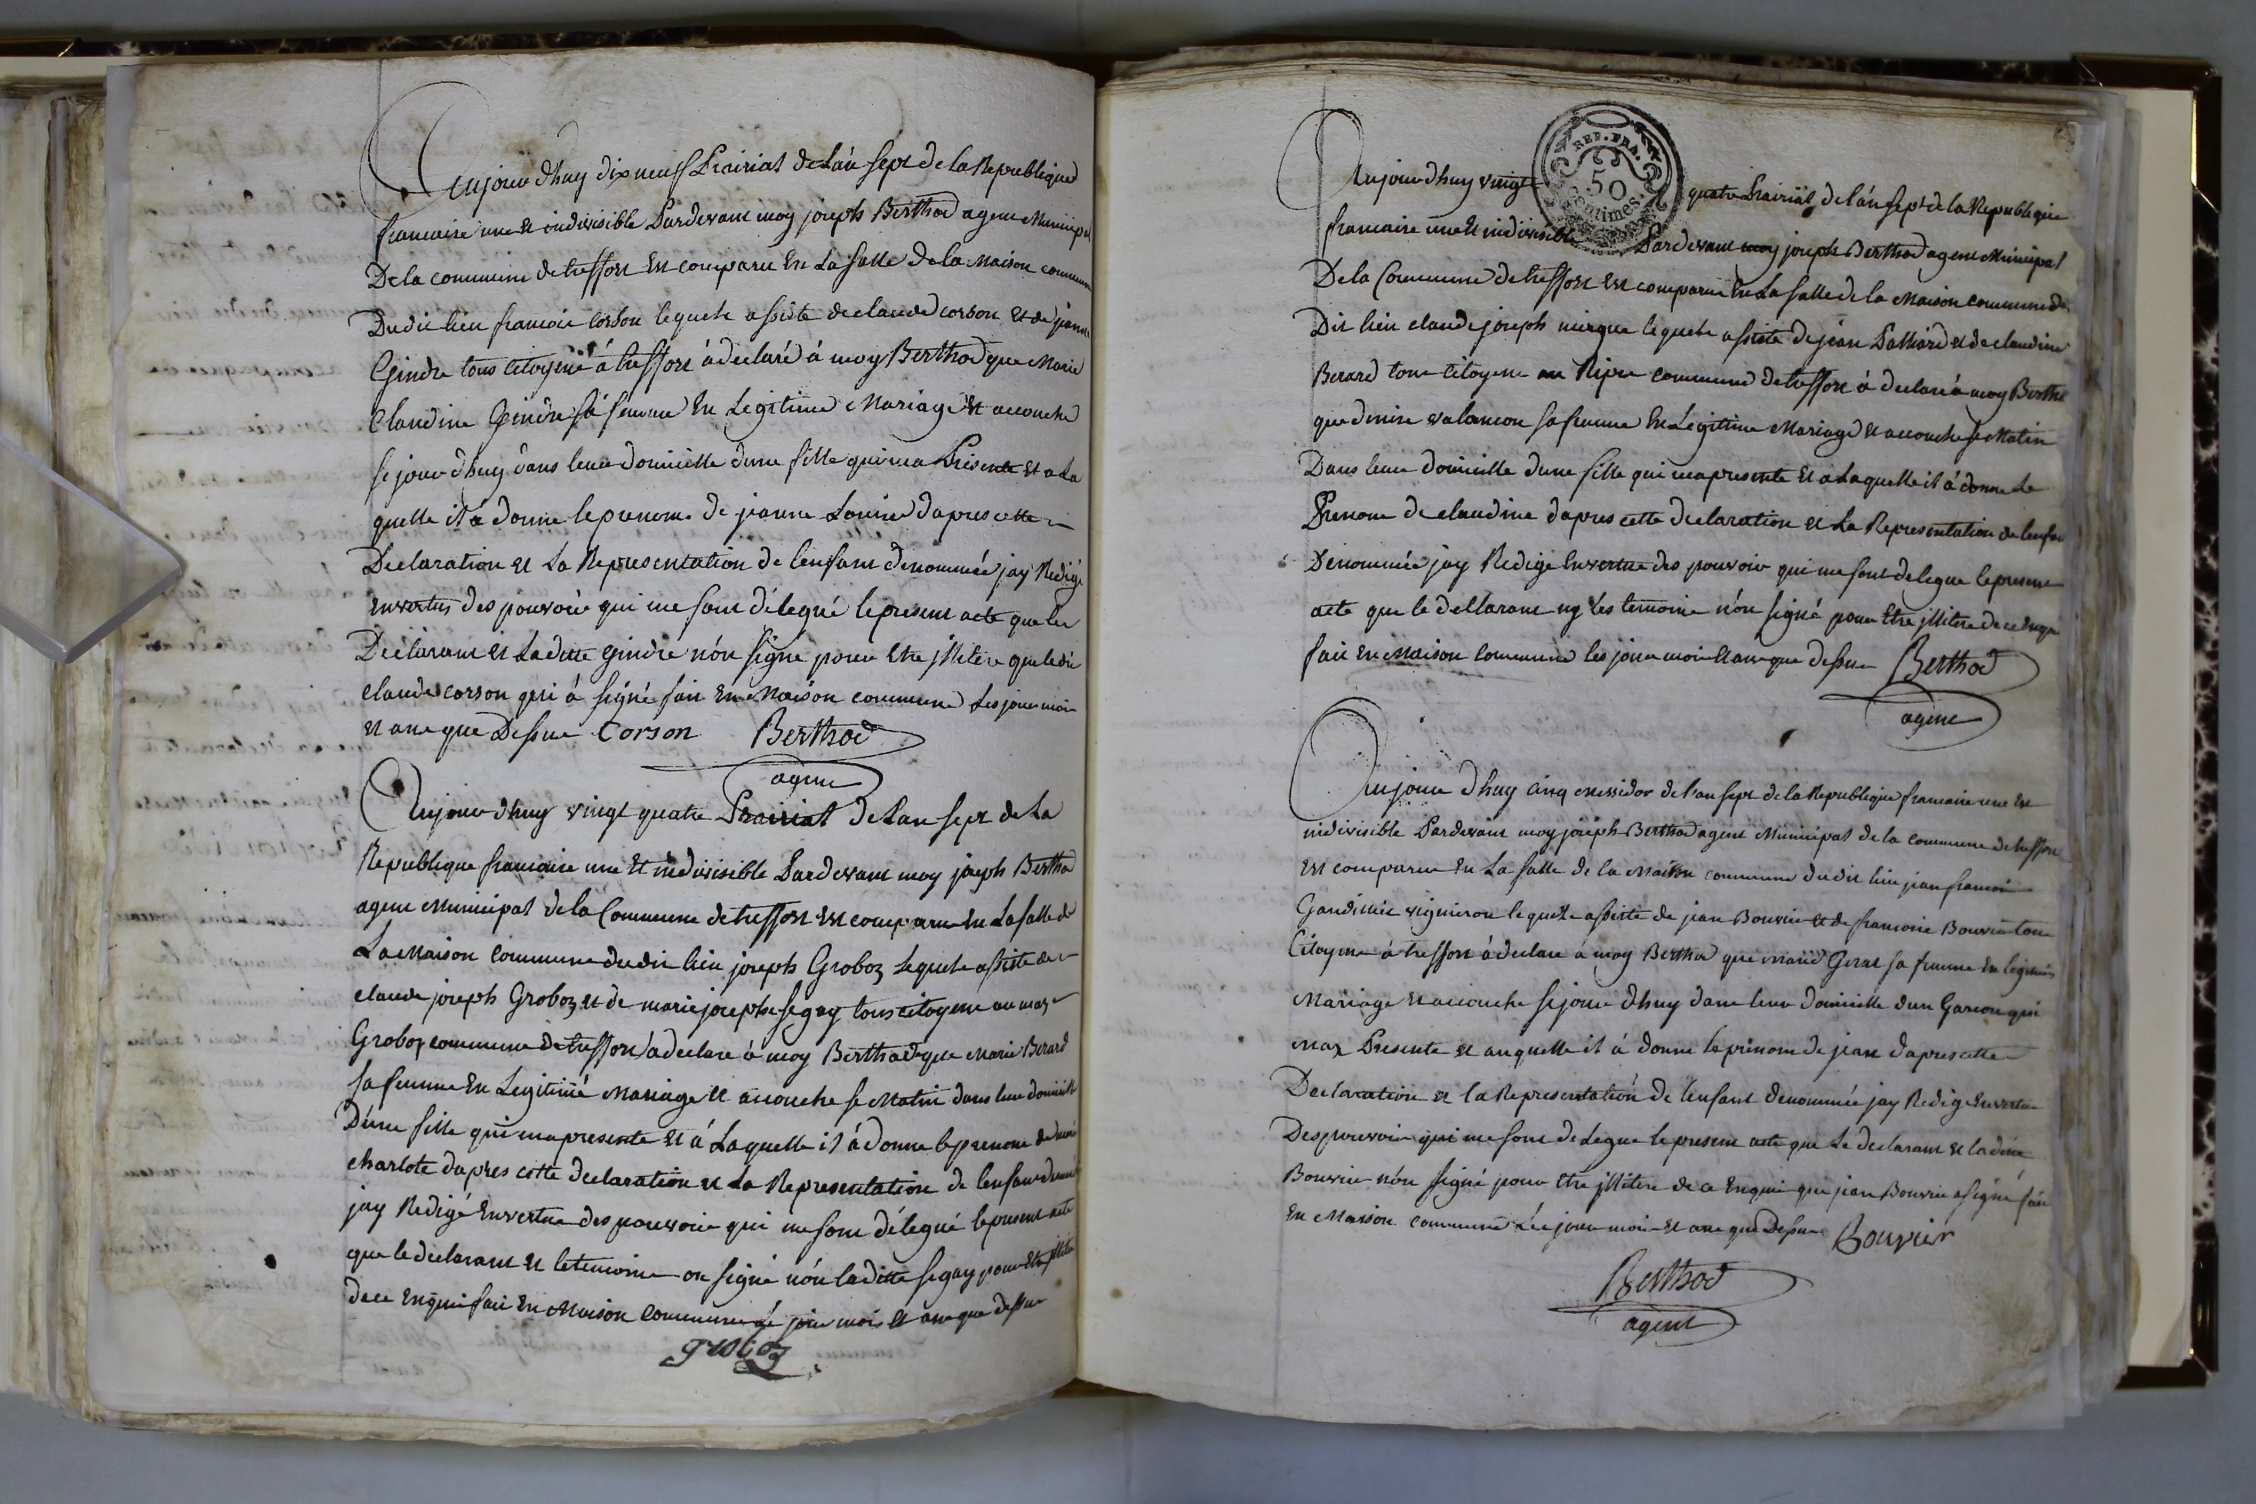 Aujourdhuy dix neuf Prairial de Lan sept de la Republique
francaise une et indivisible Pardevant moy joseph Berthod agent Municipal
De la commune de treffort Est comparu En La salle de la Maison commune
Dudit lieu francois Corson lequel assisté de claude corson et de jeanne
Gindre tous Citoyens á treffort á declaré á moy Berthod que Marie
Claudine Gindre sá femme En Legitime Mariage Et accouché
se jourdhuy dans leur domicille dune fille qui ma Présente et a La
quelle il á donné le prenom de jeanne Louise dapres cette
Declaration et La Representation de lenfant dénommée jay Redigé
En vertus des pouvoir qui me sont délegué le present acte que les
Déclarant et La ditte gindre nón signé pour Etre illitere que le dit
claude corson qui á signé fait En Maison commune Les jour mois
et ans que Dessus Corson Berthod
agent
Aujourdhuy vingt quatre Prairial de Lan sept de La
Republique francaise une Et indivisible Pardevant moy joseph Berthod
agent Municipal de la Commune de treffort Est comparu En La salle de
La Maison commune dudit lieu joseph Groboz lequel assisté de
claude joseph Groboz et de marie josephe segoy tous citoyens au max
Groboz commune de treffort á declaré á moy Berthod que Marie Berard
sa femme En Legitimé Mariage Et accouché se Matin dans leur domicille
Dúne fille qui ma presente Et á Laquelle il á donné le prenom de marie
charlote dapres cette declaration et La Representation de lenfant
jay Redigé En vertue des pouvoir qui me sont délegué le present acte
que le declarant et le temoins on signé nón la ditte segoy pour Etre illitere
de ce Enquis fait En Maison commune lé jour mois et ans que dessus
groboz
REP. FRA.
50
Centimes
Aujourdhuy vingt quatre Prairiál de lán sept de la Republique
francaise une Et indivisible Pardevant moy joseph Berthod agent Municipal
De la Commune de treffort Est comparu En La salle de la Maison commune du
Dit lieu claude joseph lequel assisté de jean Palliard et de claudine
Berard tous Citoyens au Ripes commune de treffort á declaré á moy Berthod
que denise valancon sa femme En Légittime Mariage Et accouché se Matin
Dans leur domicille dune fille qui ma presente Et a Laquelle il á donné Le
Prenom de claudine dapres cette declaration et La Representation de lenfant
Dénommée jay Redigé En vertue des pouvoir qui me sont delegué le present
acte que le declarant ny les temoins nón signé pour Etre illitere de ce Enquis
fait En Maison commune les jour mois Et ans que dessus Berthod
agent
Aujourdhuy cinq messidor de lan sept de la Republique francaise une Et
indivisible Pardevant moy joseph Berthod agent Municipal de la commune de treffort
Est comparu En La salle de la Maison commune dudit lieu jean francois
Gandillet vigneron lequel assisté de jean Bouvier et de francoise Bouvier tous
Citoyens á treffort á declaré á moy Berthod que Marie sa femme En legitime
Mariage Et accouché se jourdhuy dans leur domicille dun Garcon qui
Presente et auquelle il á donné le prénom de jean dapres cette
Declaration et la Representation de lenfant dénommée jay Redigé En vertue
Des pouvoir qui me sont delegué le present acte que Le declarant et la dite
Bouvier nón signé pour Etre illitere de ce Enquis que jean Bouvier a signé fait
En Maison commune Les jour mois Et ans que Dessus Bouvier
Berthod
agent